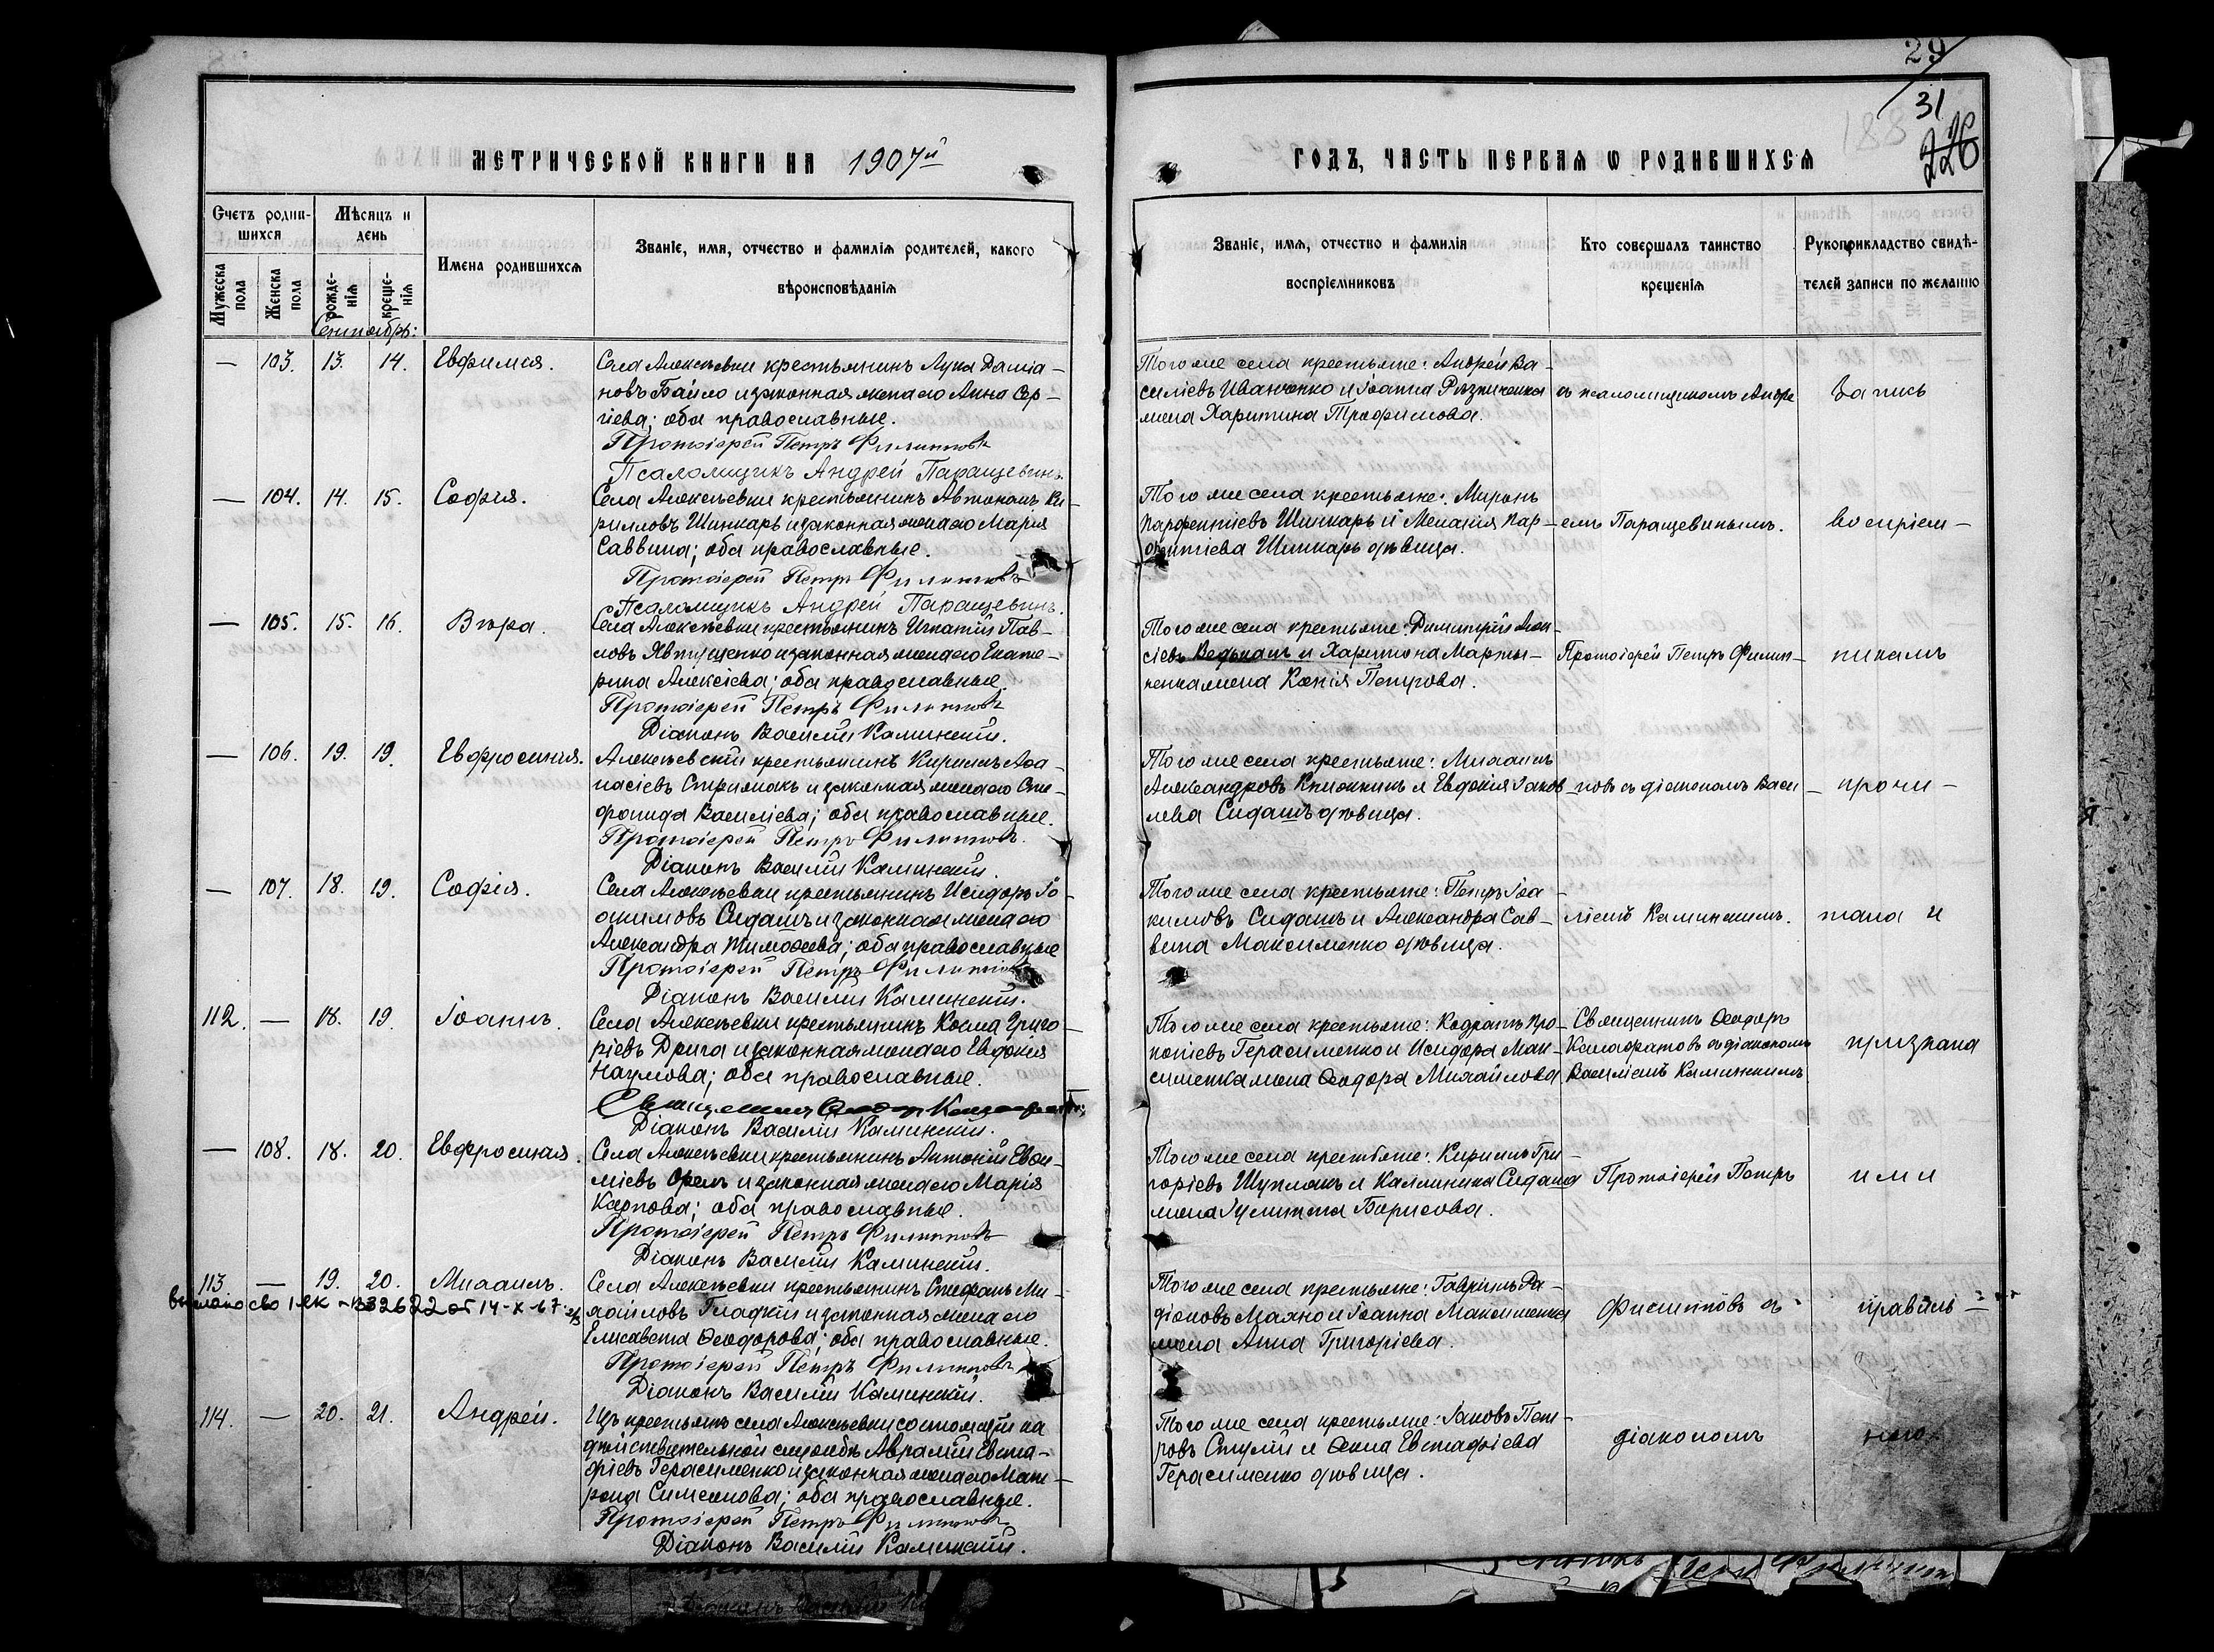 29
31
226
188
МЕТРИЧЕСКОЙ КНИГИ НА 1907й
ГОДЪ, ЧАСТЬ ПЕРВАЯ Ѡ РОДИВШИХСЯ
Счетъ родив-
шихся
Мѣсяцъ и
день
Имена родившихся
Званіе, имя, отчество и фамилія родителей, какого
вѣроисповѣданія
Мужеска
пола
Женска
пола
рожде-
нія
креще-
нія
Званіе, имя, отчество и фамилія
воспріемниковъ
Кто совершалъ таинство
крещенія
Рукоприкладство свидѣ-
телей записи по желанію
Сентябрь:
— 103. 13. 14. Евфимія.
Села Алексѣевки крестьянинъ Лука Даміа-
новъ Байло и законная жена его Анна Сер-
гіева; оба православные.
Протоіерей Петръ Филипповъ
Псаломщикъ Андрей Паращевинъ.
Того же села крестьяне: Андрей Ва-
силіевъ Иванченко и Іоанна Рѣзниченка
жена Харитина Трофимова.
съ псаломщикомъ Андре
Запись
— 104. 14. 15. Софія.
Села Алексѣевки крестьянинъ Автономъ Ки-
рилловъ Шинкарь и законная жена его Марія
Саввина; оба православные.
Протоіерей Петръ Филипповъ
Псаломщикъ Андрей Паращевинъ.
Того же села крестьяне: Миронъ
Парфентіевъ Шинкарь и Меланія Пар-
фентіева Шинкарь дѣвица.
емъ Паращевинымъ.
воспріем-
— 105. 15. 16. Вѣра.
Села Алексѣевки крестьянинъ Игнатій Пав-
ловъ Явтушенко и законная жена его Екате-
рина Алексіева; оба православные.
Протоіерей Петръ Филипповъ
Діаконъ Василій Каминскій.
Того же села крестьяне: Димитрій Алек-
сіевъ и Харитона Марты-
ненка жена Ксенія Петрова.
Протоіерей Петръ Филип-
никамъ
— 106. 19. 19. Евфросинія.
Алексѣевскій крестьянинъ Кириллъ Аѳа-
насіевъ Стрижакъ и законная жена его Сте-
фанида Василіева; оба православные.
Протоіерей Петръ Филипповъ.
Діаконъ Василій Каминскій.
Того же села крестьяне: Михаилъ
Александровъ Книжникъ и Евдокія Іаков-
лева Сидашъ дѣвица.
повъ съ діакономъ Васи-
прочи-
— 107. 18. 19. Софія.
Села Алексѣевки крестьянинъ Исидоръ Іо-
акимовъ Сидашъ и законная жена его
Александра Тимоѳеева; оба православные
Протоіерей Петръ Филипповъ
Діаконъ Василій Каминскій.
Того же села крестьяне: Петръ Іоа-
кимовъ Сидашъ и Александра Сав-
вина Максименко дѣвица.
ліемъ Каминскимъ.
тана и
112. — 18. 19. Іоаннъ.
Села Алексѣевки крестьянинъ Косма Григо-
ріевъ Дрига и законная жена его Евдокія
Наумова; оба православные.
Священникъ Ѳеодоръ
Діаконъ Василій Каминскій.
Того же села крестьяне: Кодратъ Про-
копіевъ Герасименко и Исидора Мак-
сименка жена Ѳеодора Михайлова
Священникъ Ѳеодоръ
съ діакономъ
Василіемъ Каминскимъ
признана
— 108. 18. 20. Евфросинія.
Села Алексѣевки крестьянинъ Антоній Евѳи-
міевъ Орелъ и законная жена его Марія
Карпова; оба православные.
Протоіерей Петръ Филипповъ
Діаконъ Василій Каминскій.
Того же села крестьяне: Кириллъ Гри-
горіевъ Шупликъ и Каллиника Сидаша
жена Іулитта Борисова.
Протоіерей Петръ
ими
113 — 19. 20. Михаилъ.
от 14-X-67
Села Алексѣевки крестьянинъ Стефанъ Ми-
хайловъ Гладкій и законная жена его
Елисавета Ѳеодорова; оба православные.
Протоіерей Петръ Филипповъ
Діаконъ Василій Каминскій.
Того же села крестьяне: Гавріилъ Ра-
діоновъ Маяно и Іоанна Максименка
жена Анна Григоріева.
Филипповъ съ
правиль-
114. — 20. 21. Андрей.
Изъ крестьянъ села Алексѣевки состоящій на
дѣйствительной службѣ Аврамій Евста-
фіевъ Герасименко и законная жена его Мат-
рона Симеонова; оба православные.
Протоіерей Петръ Филипповъ
Діаконъ Василій Каминскій.
Того же села крестьяне: Іаковъ Пет-
ровъ Стулій и Ѳекла Евстафіева
Герасименко дѣвица.
діакономъ
ною.